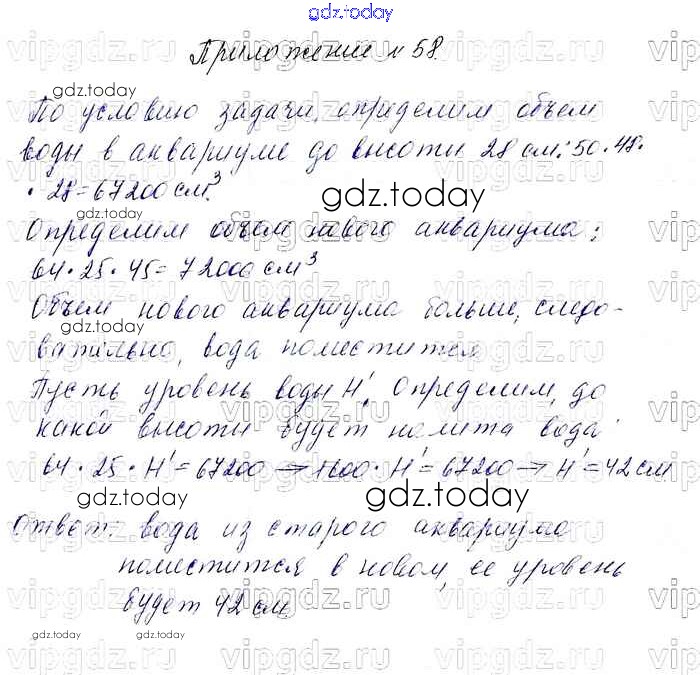 gdz.today
Приложение № 58.
По условию задачи, определим объем
воды в аквариуме до высоты 28 см: 50 · 48 ·
· 28 = 67200 см³.
Определим объем нового аквариума:
64 · 25 · 45 = 72000 см³
Объем нового аквариума больше, следо-
вательно, вода поместится
Пусть уровень воды H'. Определим, до
какой высоты будет налита вода:
64 · 25 · H' = 67200 → 1600 · H' = 67200 → H' = 42 см
Ответ: вода из старого аквариума
поместится в новом, ее уровень
будет 42 см